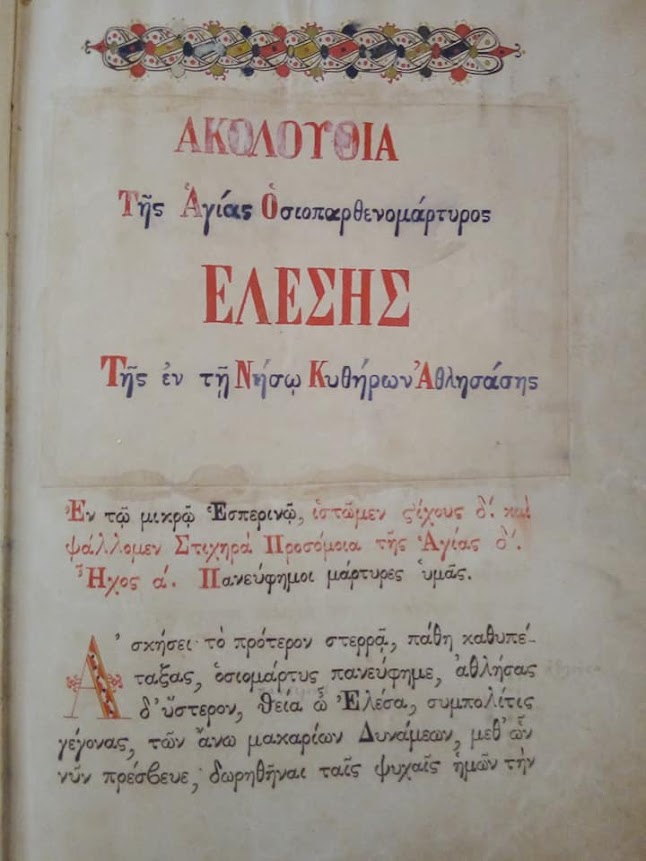 ΑΚΟΛΟΥΘΙΑ
Τῆς Ἁγίας Ὁσιοπαρθενομάρτυρος
ΕΛΕΣΗΣ
Τῆς ἐν τῇ Νήσῳ Κυθήρων Ἀθλησάσης
Ἐν τῷ μικρῷ Ἑσπερινῷ, ἱστῶμεν ϛίχους δ΄. καὶ
ψάλλομεν Στιχηρὰ Προσόμοια τῆς Ἁγίας δ΄.
Ἦχος α΄. Πανεύφημοι μάρτυρες ὑμᾶς.
Ἀσκήσει τὸ πρότερον στερρᾷ, πάθη καθυπέ-
ταξας, ὁσιομάρτυς πανεύφημε, ἀθλήσας
δ’ ὕστερον, θεία ὦ Ἐλέσα, συμπολίτις
γέγονας, τῶν ἄνω μακαρίων Δυνάμεων, μεθ’ ὧν
νῦν πρέσβευε, δωρηθῆναι ταῖς ψυχαῖς ἡμῶν τὴν